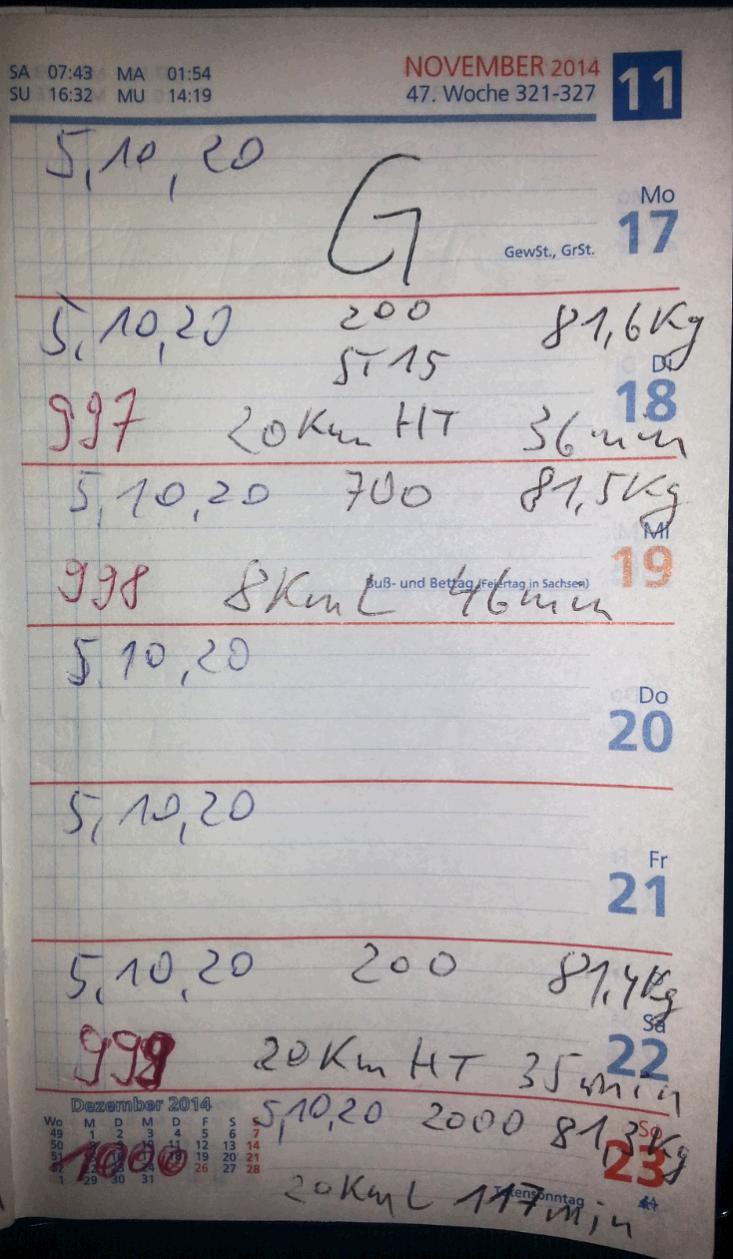 SA 07:43 MA 01:54 NOVEMBER 2014 11
SU 16:32 MU 14:19 47. Woche 321-327
5,10,20
G
Mo
17
GewSt., GrSt.
5,10,20 200 81,6Kg
ST15
Di
18
997 20Km HT 36min
5,10,20 700 81,5Kg
Mi
19
Buß- und Bettag (Feiertag in Sachsen)
998 8Km L 46min
5,10,20
Do
20
5,10,20
Fr
21
5,10,20 200 81,4Kg
Sa
22
999 20Km HT 35min
Dezember 2014
5,10,20 2000 81,3Kg
Wo M D M D F S S
49 1 2 3 4 5 6 7
50 8 9 10 11 12 13 14
51 15 16 17 18 19 20 21
52 22 23 24 25 26 27 28
1 29 30 31
1000
So
23
Totensonntag
20Km L 117min